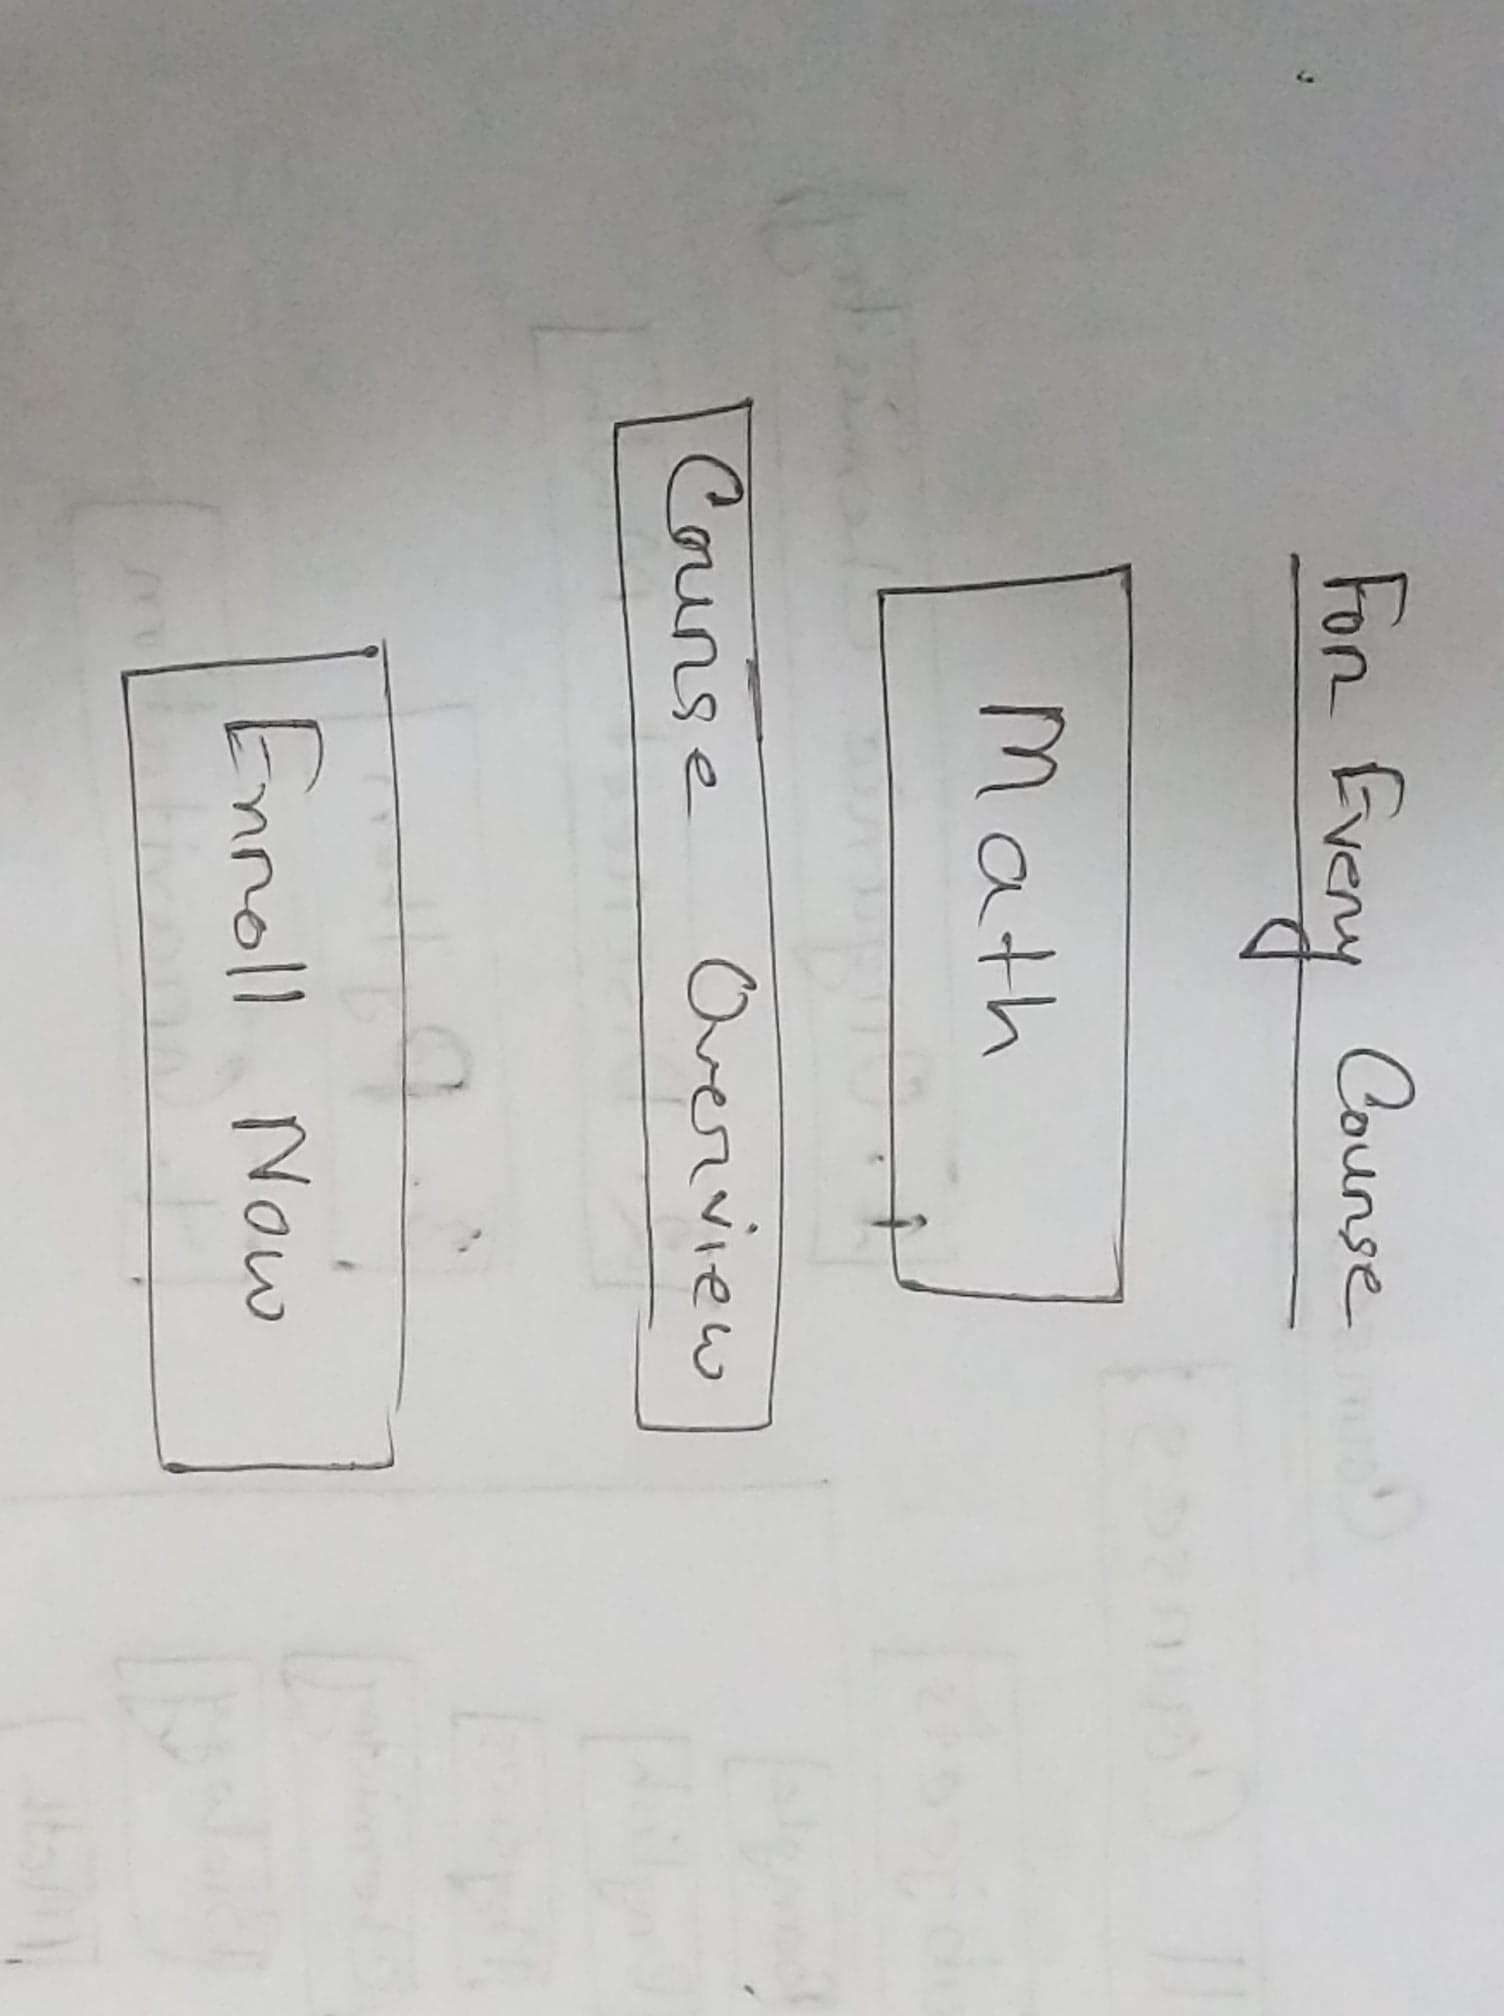 For Every Course
Math
Course Overview
Enroll Now